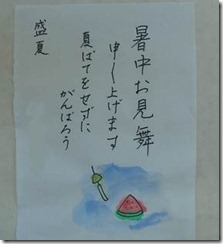 暑中お見舞
申し上げます
夏ばてをせずに
がんばろう
盛夏